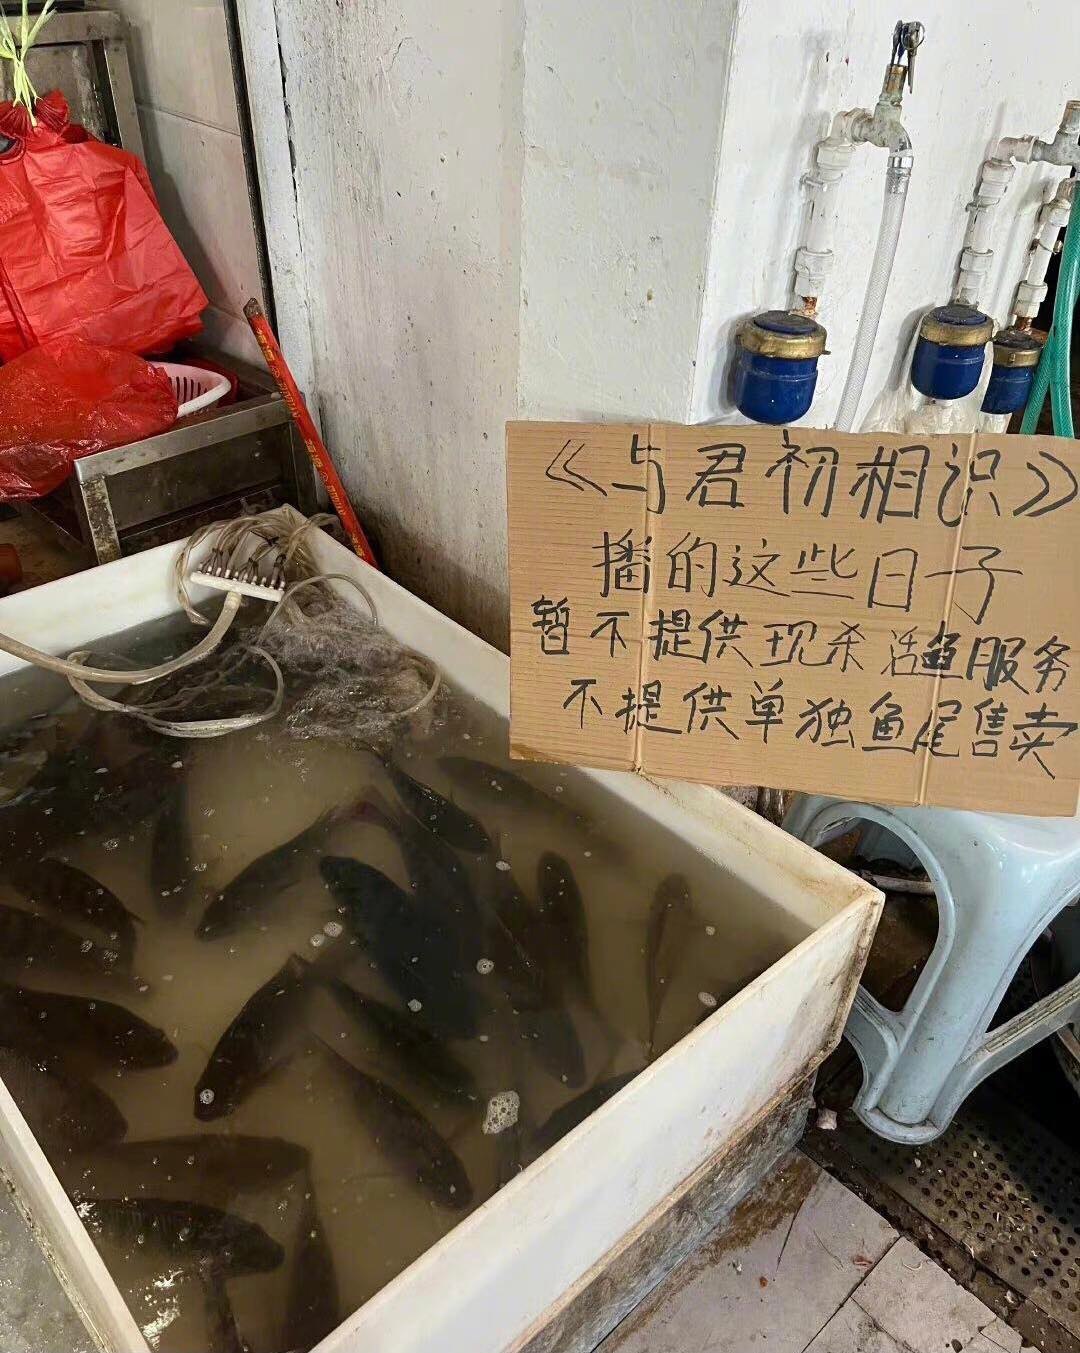 《与君初相识》
播的这些日子
暂不提供现杀活鱼服务
不提供单独鱼尾售卖